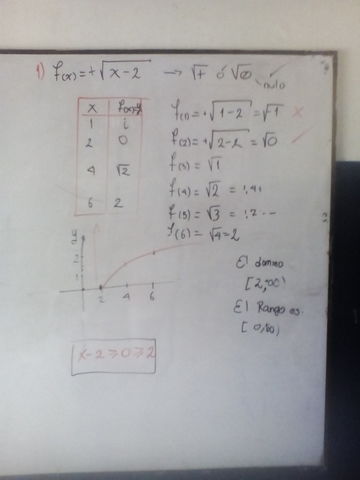 1) f(x)=+√x-2 → √+ ó √0
nulo
x f(x)=y
1 i
2 0
4 √2
6 2
f(1)=+√1-2=√-1 x
f(2)=+√2-2=√0
f(3)=√1
f(4)=√2 = 1,41
f(5)=√3 = 1,2...
f(6)=√4=2
y
2
1
2 4 6
El domino
[2,∞)
El Rango es.
[0,∞)
x-2≥0≥2